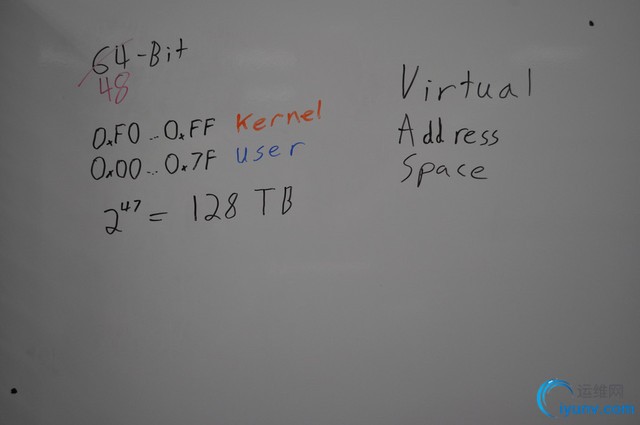 64-Bit
48
0xF0...0xFF Kernel
0x00...0x7F User
2^47 = 128 TB
Virtual
Address
Space
运维网
iyunv.com